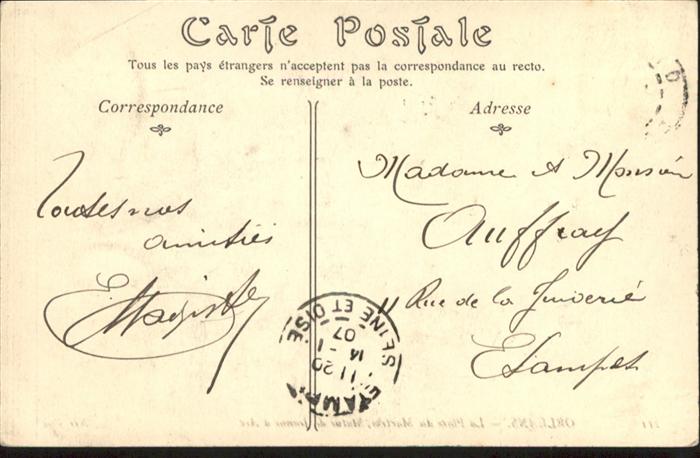 Carte Postale
Tous les pays étrangers n'acceptent pas la correspondance au recto.
Se renseigner à la poste.
Correspondance
Adresse
Toutes nos
amitiés
Madame et Monsieur
Auffray
11 Rue de la Juiverie
Etampes
ETAMPES
SEINE ET OISE
11 20
14 - 1
07
211 ORLÉANS. — La Place du Martroi, Statue de Jeanne d'Arc